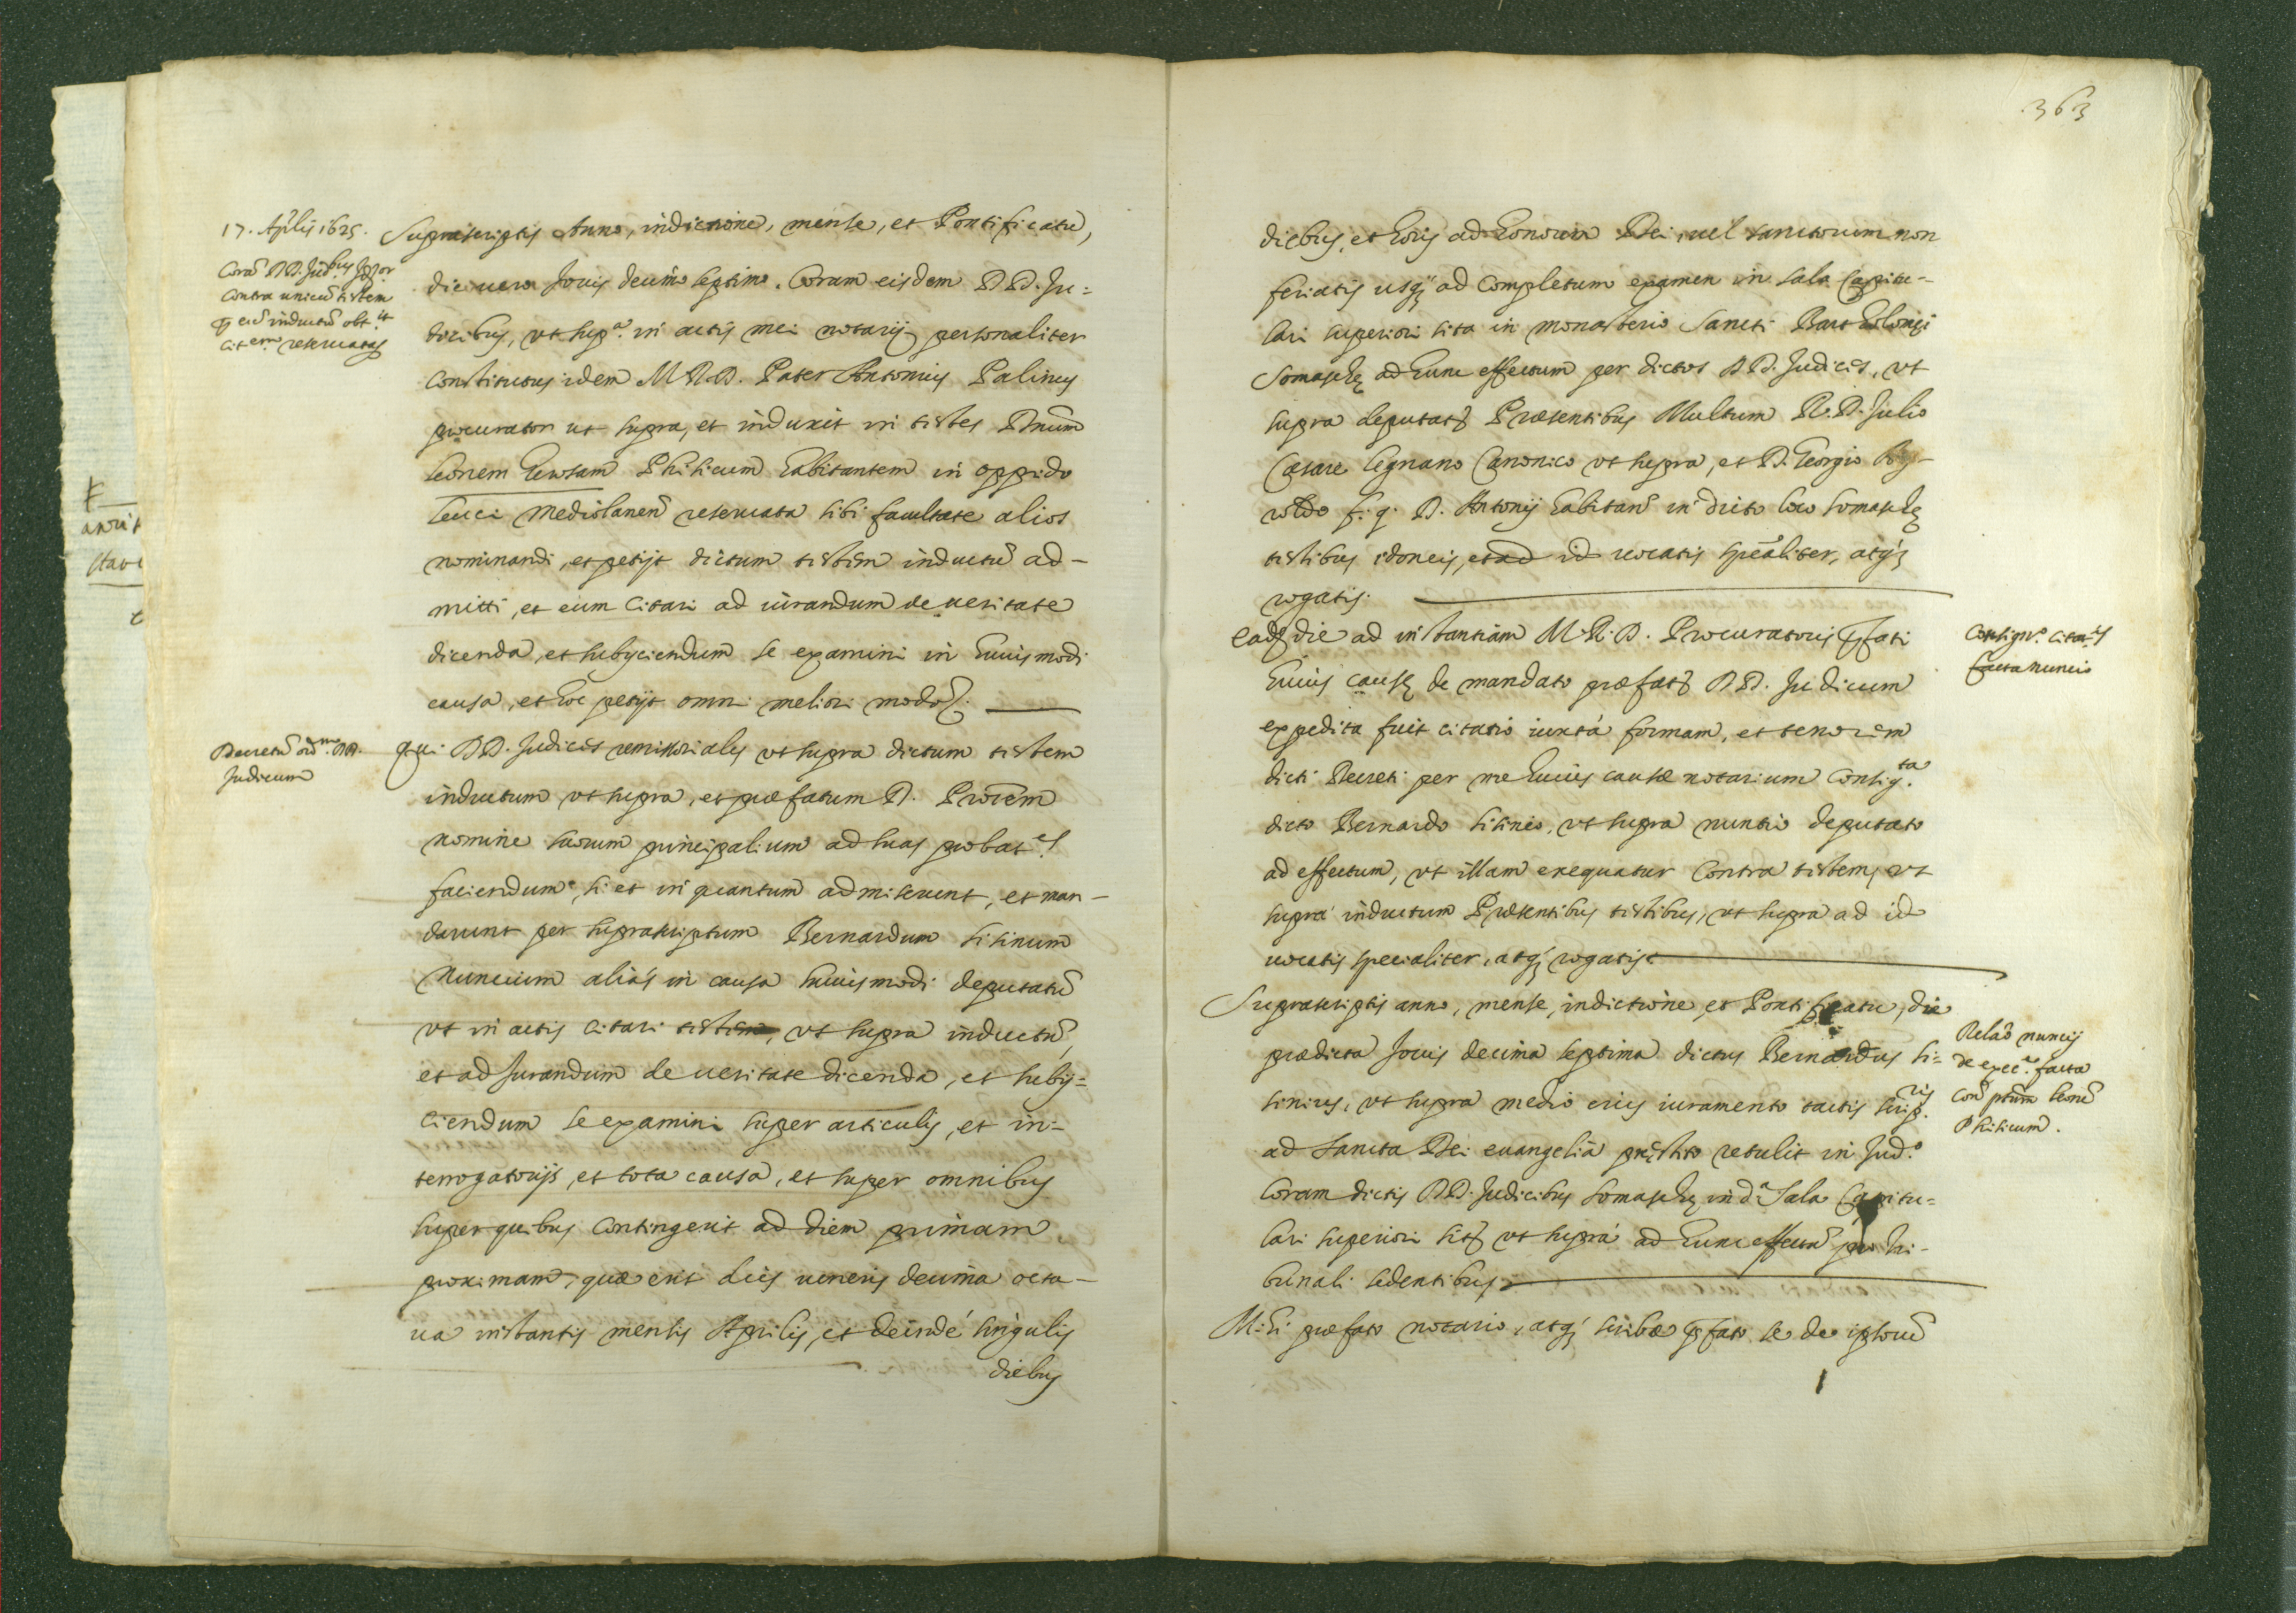 17. Aplis 1625.
Corã DD. Jud.bus
contra unicũ testem
eiũ inductũ obt.it
cit.em reseruatas
Suprascriptis Anno, indictione, mense, et Pontificatu,
die uero Jouis decimo septimo. Coram eisdem DD. Ju=
dicibus, vt sup.a in actis mei notarij personaliter
constitutus idem M R.D. Pater Antonius Palinus
procurator ut supra, et induxit in testes Dnum
leonem Phisicum habitantem in oppido
leuci mediolaneñ reseruata sibi facultate alios
nominandi, et petijt dictum testem inductũ ad-
mitti, et eum citari ad iurandum de ueritate
dicenda, et subijciendum se examini in huiusmodi
causa, et hoc petijt omni meliori modo
Decretũ DD.
Judicum
qui DD. Judices remissoriales vt supra dictum testem
inductum vt supra, et præfatum D. Procem
nomine suorum principalium ad suas probat.es
faciendum, si et in quantum admiserunt, et man-
darunt per suprascriptum Bernardum sisinum
Nuncium aliàs in causa huiusmodi deputatũ
vt in actis citari testem, vt supra inductũ,
et ad Jurandum de ueritate dicenda, et subij=
ciendum se examini super articulis, et in-
terrogatorijs, et tota causa, et super omnibus
super quibus contingerit ad diem primam
proximam, quæ erit dies ueneris decima octa-
ua instantis mensis Aprilis, et deindé singulis
diebus
363
diebus, et horis ad honorem Dei, uel sanctorum non
feriatis usq; ad completum examen in sala Capitu-
lari superiori sita in monasterio Sancti Bartholomei
Somaschę ad hunc effectum per dictos DD. Judices, vt
supra deputat Præsentibus Multum R.D. Julio
Cæsare legnano Canonico vt supra, et D. Georgio
f. q. D. Antonij habitañ in dicto loco somaschę
testibus idoneis, et ad id uocatis specãliter, atq;
rogatis.
eadẽ die ad instantiam M.R.D. Procuratoris p̃fati
huius causę de mandato præfat DD. Judicum
expedita fuit citatio iuxtà formam, et tenorem
dicti Decreti per me huius causæ notarium consig.ta
dicto Bernardo sisineo, vt supra nuntio deputato
ad effectum, vt illam exequatur contra testem, vt
suprà inductum Præsentibus testibus, vt supra ad id
uocatis specialiter, atq; rogatis
Consign.o citat.is
facta nuncio
Suprascriptis anno, mense, indictione, et Pontificatu, die
prædicta Jouis decima septima dictus Bernardus si=
sinius, vt supra medio eius iuramento tactis scrip.ris
ad sancta Dei euangelia pręstito retulit in Jud.o
coram dictis DD. Judicibus somaschę in d.a Sala Capitu=
lari superiori sit vt suprà ad hunc effectũ pro tri-
bunali sedentibus
Relaõ nuncij
de exec.e facta
coñ ptũm leonẽ
Phisicum.
Mihi præfato notario, atq; scribæ p̃fato se de ipsorũ